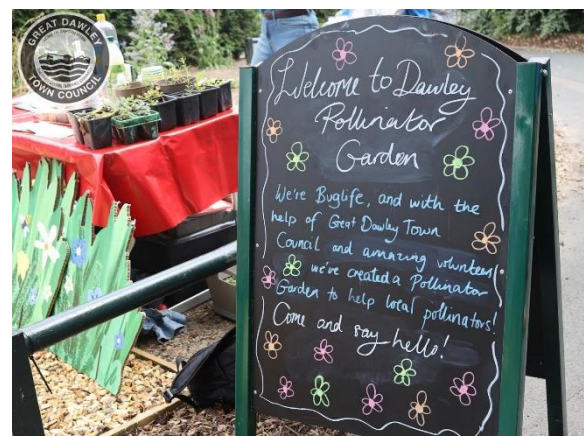 GREAT DAWLEY
TOWN COUNCIL
Welcome to Dawley
Pollinator
Garden
We're Buglife, and with the
help of Great Dawley Town
Council and amazing volunteers
we've created a Pollinator
Garden to help local pollinators!
Come and say hello!